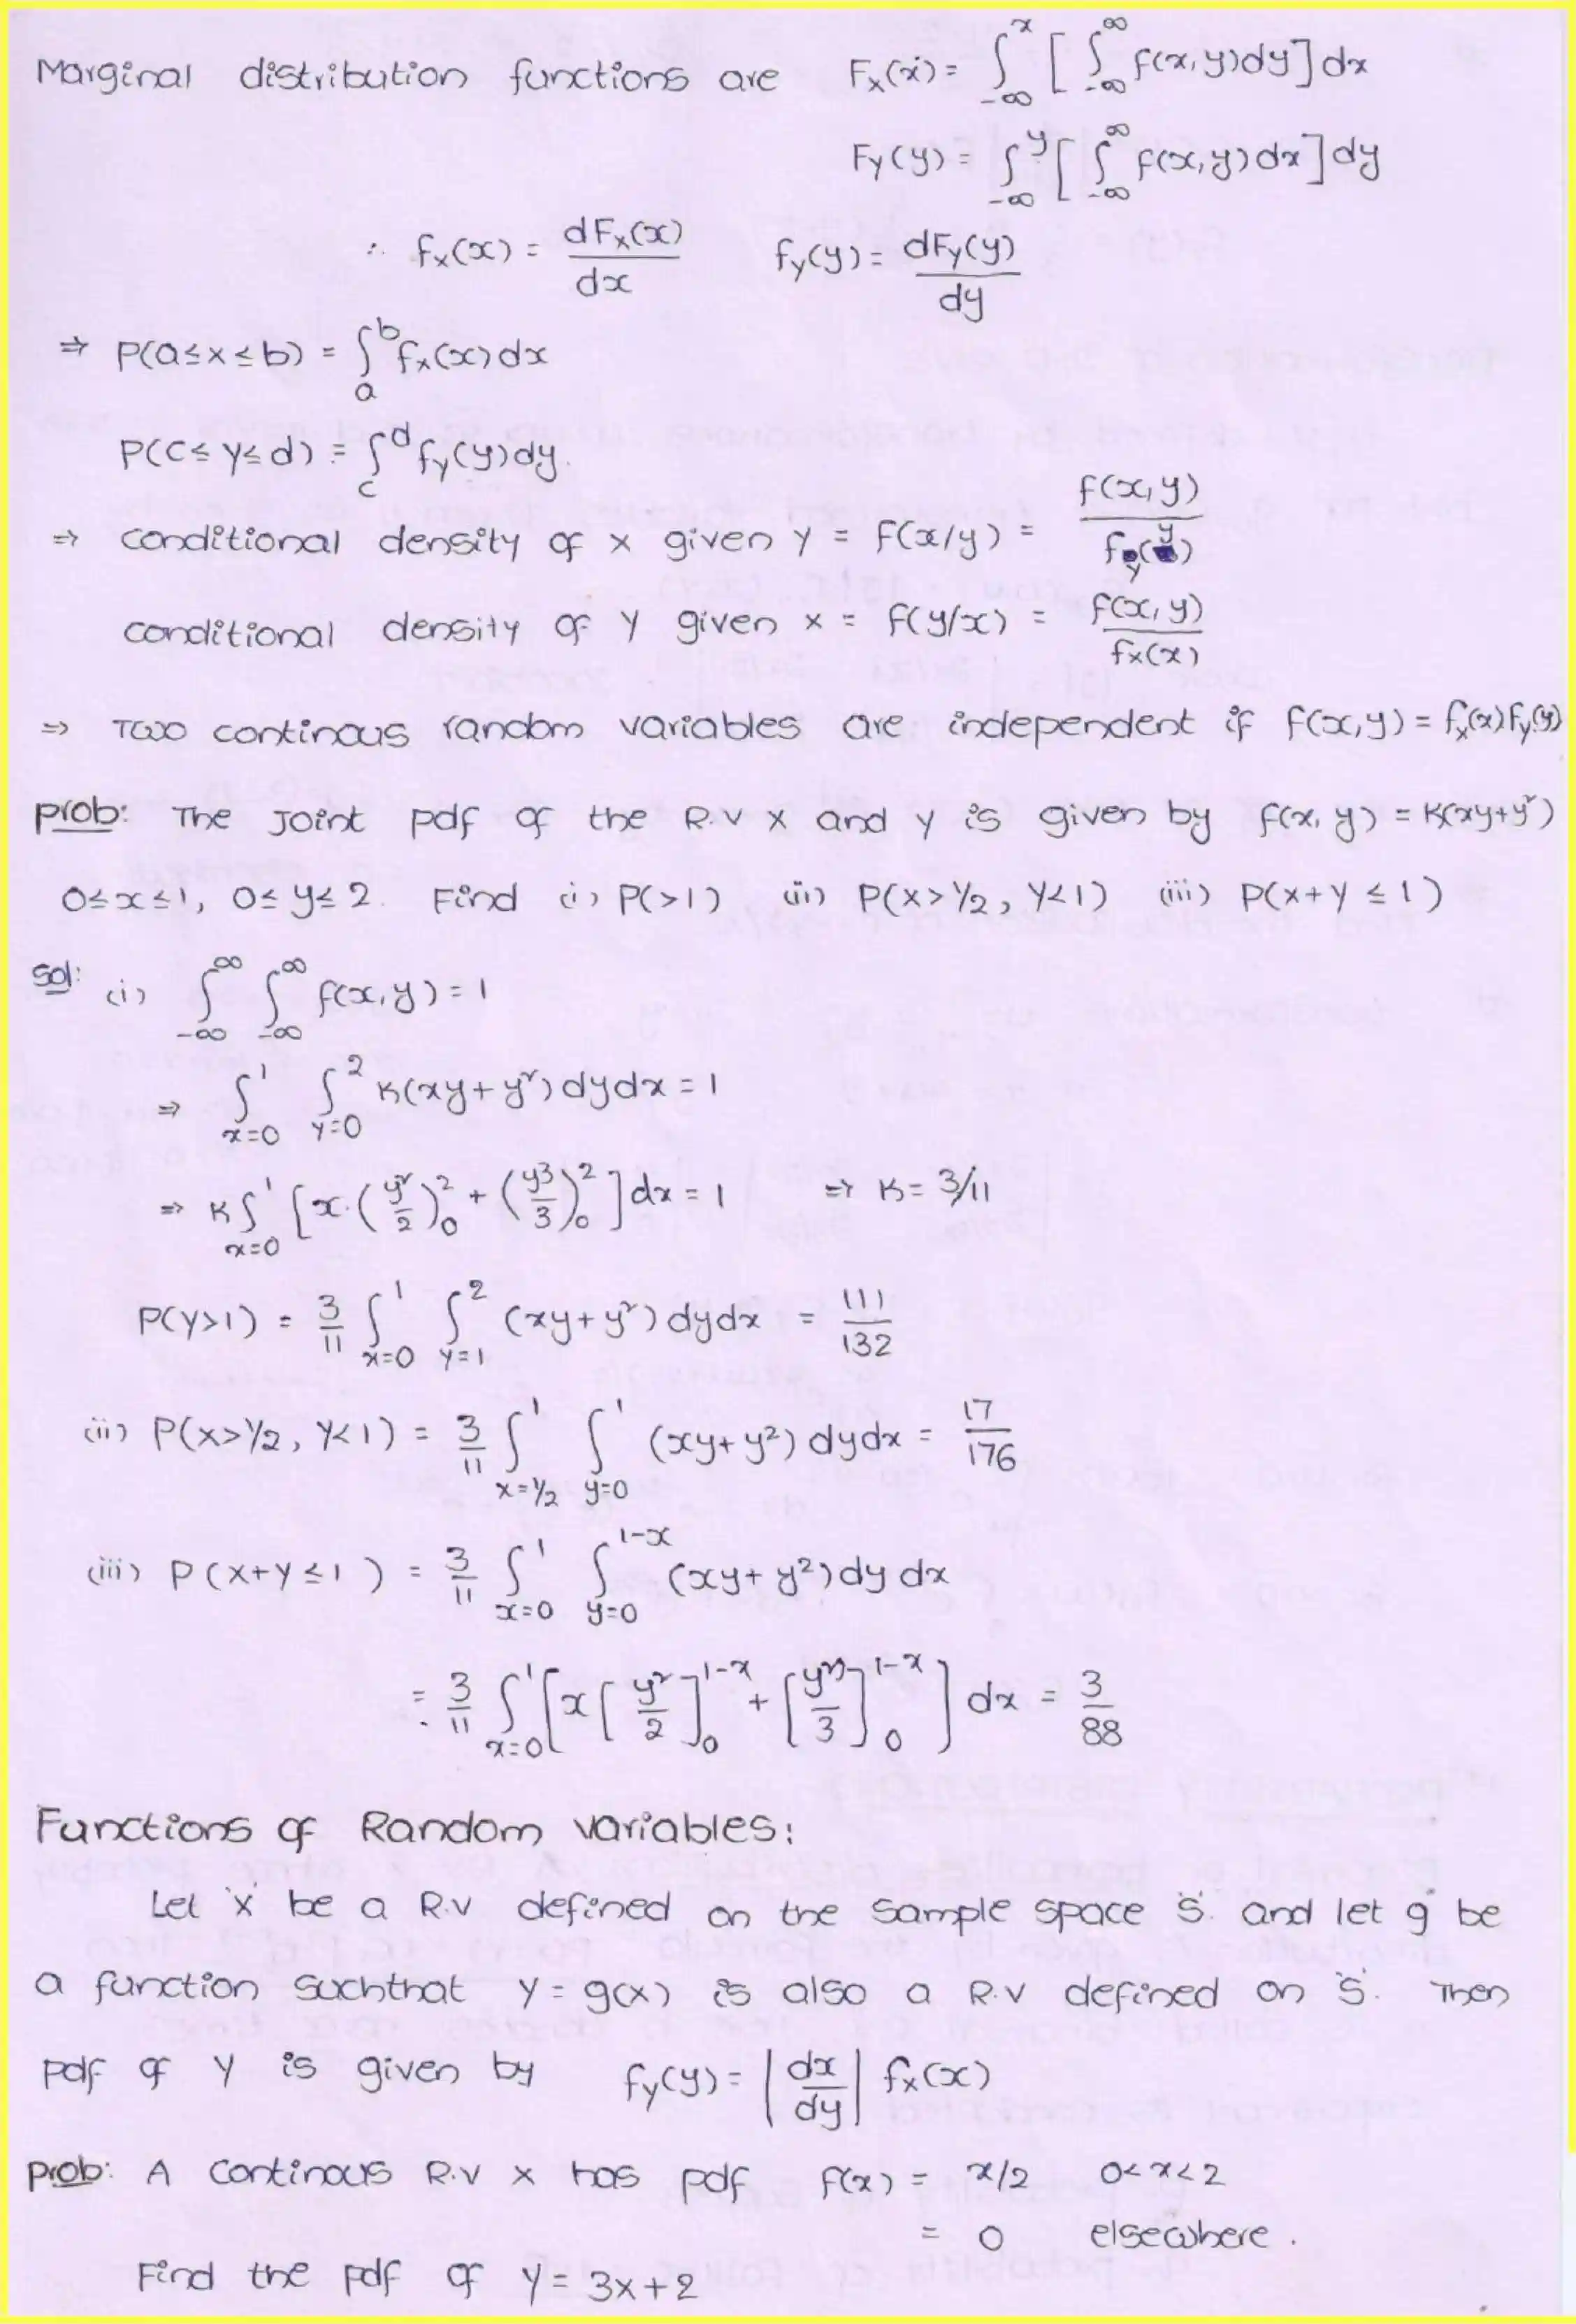 Marginal distribution functions are Fx(x) = ∫_{-∞}^{x} [ ∫_{-∞}^{∞} f(x,y)dy ] dx
Fy(y) = ∫_{-∞}^{y} [ ∫_{-∞}^{∞} f(x,y)dx ] dy
∴ fx(x) = dFx(x)/dx fy(y) = dFy(y)/dy
⇒ P(a≤x≤b) = ∫_{a}^{b} fx(x)dx
P(c≤y≤d) = ∫_{c}^{d} fy(y)dy.
⇒ conditional density of x given y = f(x/y) = f(x,y)/fy(y)
conditional density of y given x = f(y/x) = f(x,y)/fx(x)
⇒ Two continous random variables are independent if f(x,y) = fx(x)fy(y)
prob: The Joint pdf of the R.v x and y is given by f(x,y) = K(xy+y²)
0≤x≤1, 0≤y≤2. Find (i) P(>1) (ii) P(x>1/2, y<1) (iii) P(x+y ≤1)
Sol: (i) ∫_{-∞}^{∞} ∫_{-∞}^{∞} f(x,y) = 1
⇒ ∫_{x=0}^{1} ∫_{y=0}^{2} K(xy+y²)dydx = 1
⇒ K∫_{x=0}^{1} [x.(y²/2)_0^2 + (y³/3)_0^2] dx = 1 ⇒ K = 3/11
P(y>1) = 3/11 ∫_{x=0}^{1} ∫_{y=1}^{2} (xy+y²)dydx = 111/132
(ii) P(x>1/2, y<1) = 3/11 ∫_{x=1/2}^{1} ∫_{y=0}^{1} (xy+y²)dydx = 17/176
(iii) P(x+y≤1) = 3/11 ∫_{x=0}^{1} ∫_{y=0}^{1-x} (xy+y²)dy dx
= 3/11 ∫_{x=0}^{1} [x[y²/2]_0^{1-x} + [y³/3]_0^{1-x}] dx = 3/88
Functions of Random variables:
Let 'x' be a R.v defined on the sample space 's'. and let 'g' be
a function suchthat y = g(x) is also a R.v defined on 's'. Then
pdf of y is given by fy(y) = |dx/dy| fx(x)
prob: A continous R.v x has pdf f(x) = x/2 0<x<2
= 0 elsewhere.
Find the pdf of y = 3x+2